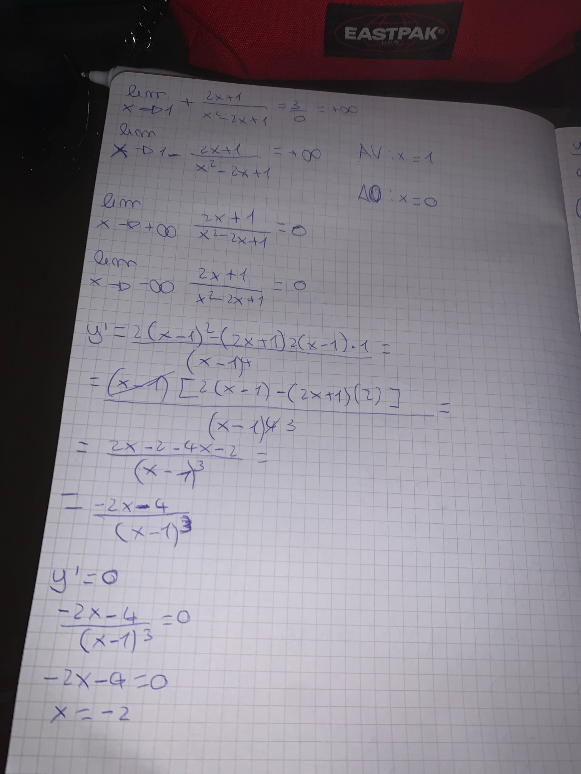 EASTPAK
lim x→1+ (2x+1)/(x²-2x+1) = 3/0 = +∞
lim x→1- (2x+1)/(x²-2x+1) = +∞ AV: x=1
AO: x=0
lim x→+∞ (2x+1)/(x²-2x+1) = 0
lim x→-∞ (2x+1)/(x²-2x+1) = 0
y' = (2(x-1)²-(2x+1)2(x-1)·1)/(x-1)⁴ =
= ((x-1)[2(x-1)-(2x+1)(2)])/(x-1)⁴ 3 =
= (2x-2-4x-2)/(x-1)³ =
= (-2x-4)/(x-1)³
y'=0
(-2x-4)/(x-1)³ = 0
-2x-4=0
x=-2